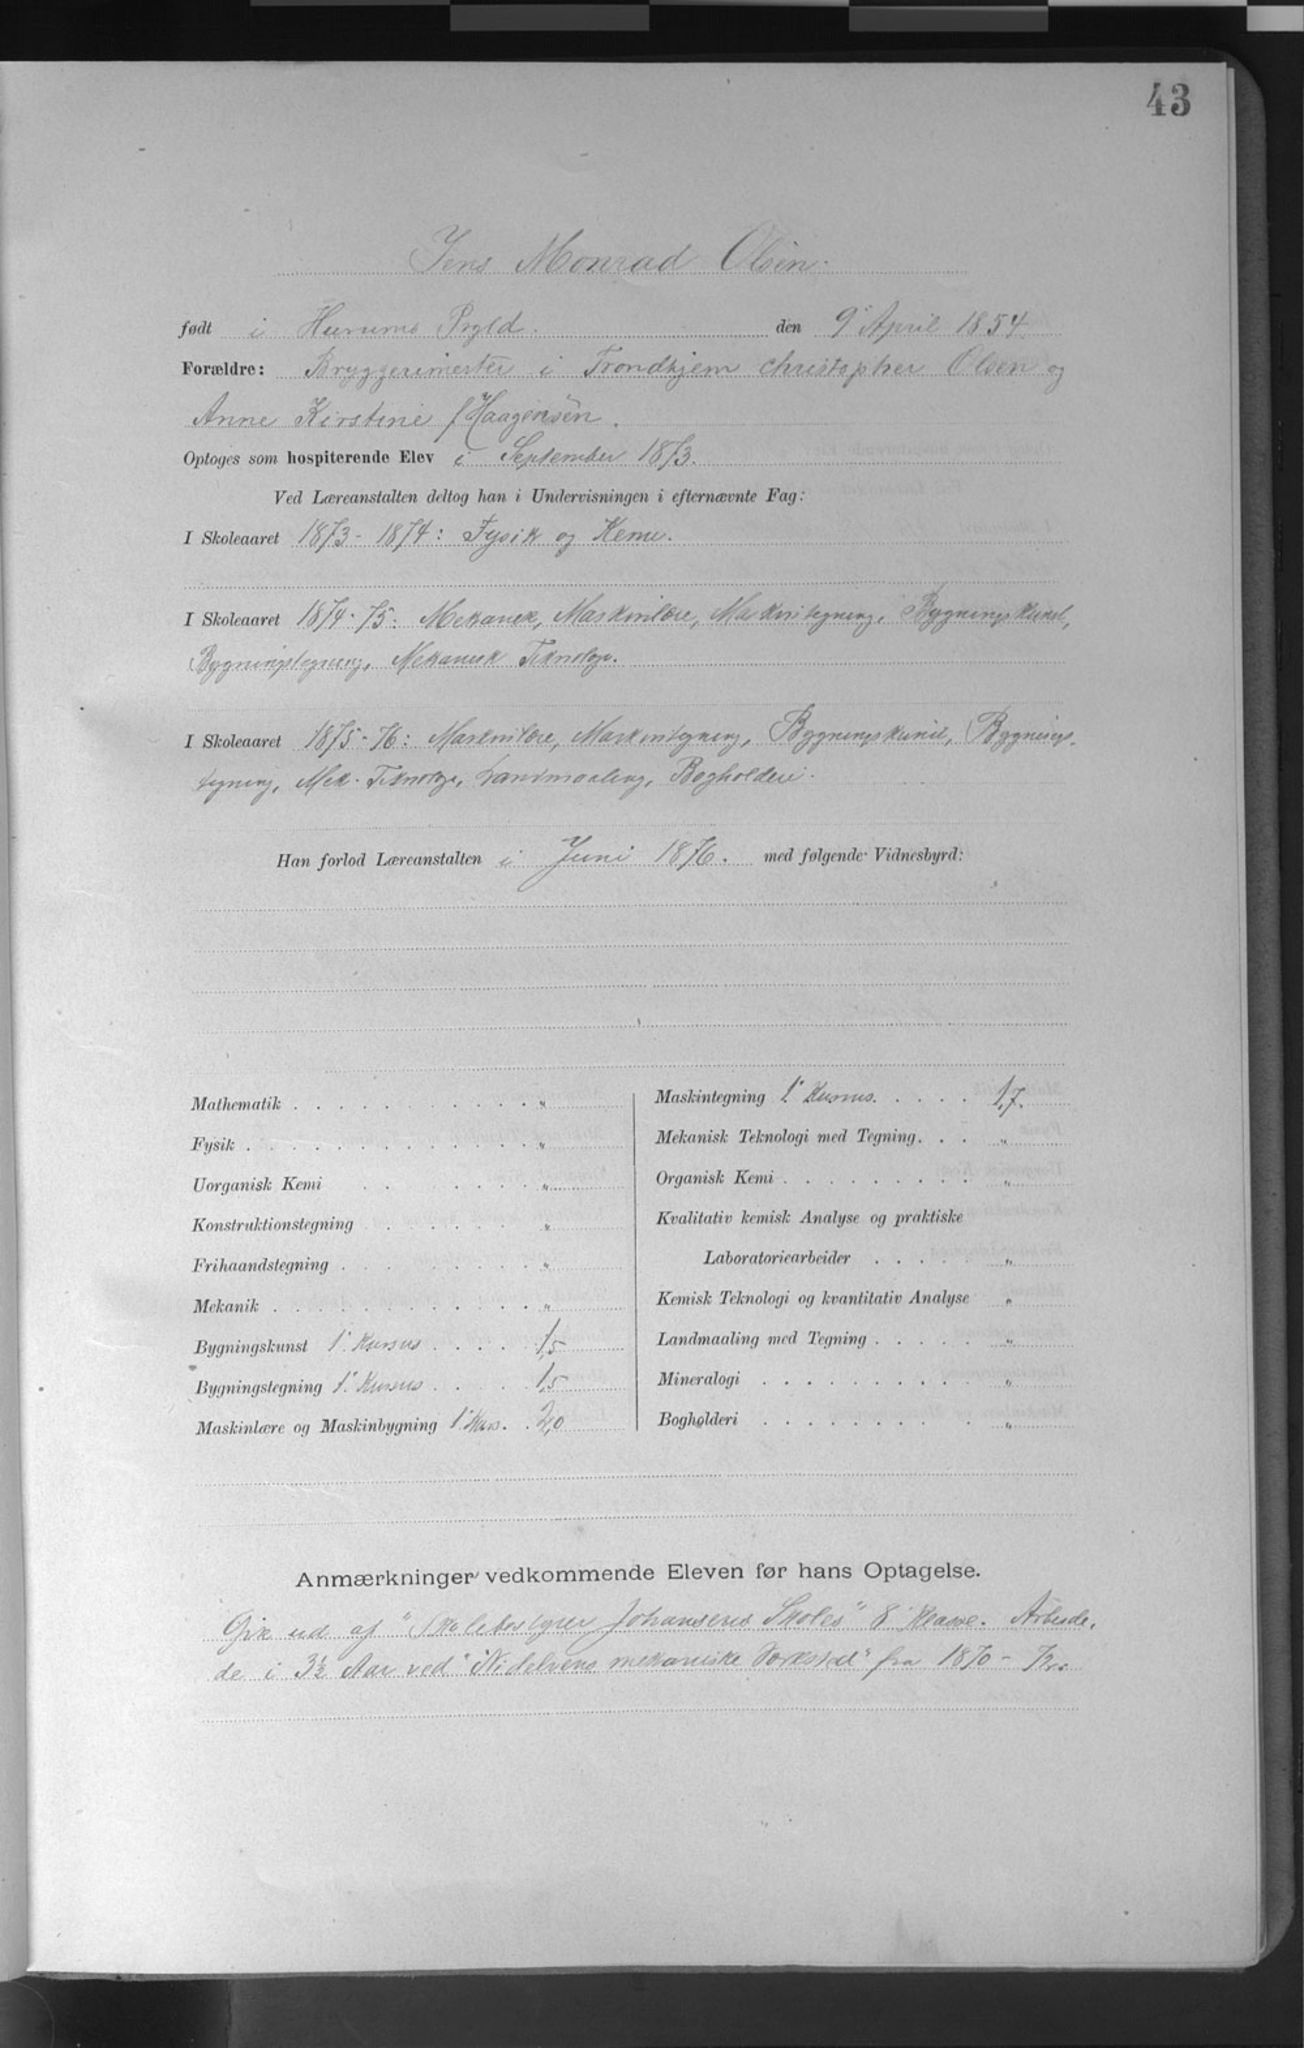 43
Jens Monrad Olsen.
født i Hurums Prgld. den 9' April 1854.
Forældre: Bryggerimester i Trondhjem Christopher Olsen og
Anne Kirstine f. Haagensen.
Optoges som hospiterende Elev i September 1873.
Ved Læreanstalten deltog han i Undervisningen i efternævnte Fag:
I Skoleaaret 1873-1874: Fysik og Kemi.
I Skoleaaret 1874-75: Mekanik, Maskinlære, Maskintegning, Bygningskunst,
Bygningstegning, Mekanisk Teknologi.
I Skoleaaret 1875-76: Maskinlære, Maskintegning, Bygningskunst, Bygnings-
tegning, Mek. Teknologi, Landmaaling, Bogholderi.
Han forlod Læreanstalten i Juni 1876. med følgende Vidnesbyrd:
Mathematik . . . . . . . . . . . . "
Fysik . . . . . . . . . . . . . . "
Uorganisk Kemi . . . . . . . . "
Konstruktionstegning . . . . . . "
Frihaandstegning . . . . . . . . "
Mekanik . . . . . . . . . . . . . "
Bygningskunst 1' Kursus . . . . 1,5
Bygningstegning 1' Kursus . . . . 1,5
Maskinlære og Maskinbygning 1' Kurs. . 2,0
Maskintegning 1' Kursus. . . . . 1,7.
Mekanisk Teknologi med Tegning. . . "
Organisk Kemi . . . . . . . . . "
Kvalitativ kemisk Analyse og praktiske
Laboratoriearbeider . . . . . "
Kemisk Teknologi og kvantitativ Analyse "
Landmaaling med Tegning . . . . . "
Mineralogi . . . . . . . . . "
Bogholderi . . . . . . . . . . "
Anmærkninger vedkommende Eleven før hans Optagelse.
Gik ud af "Skolebestyrer Johansens Skoles" 8' Klasse. Arbeide-
de i 3½ Aar ved "Nidelvens mekaniske Værksted" fra 1870-